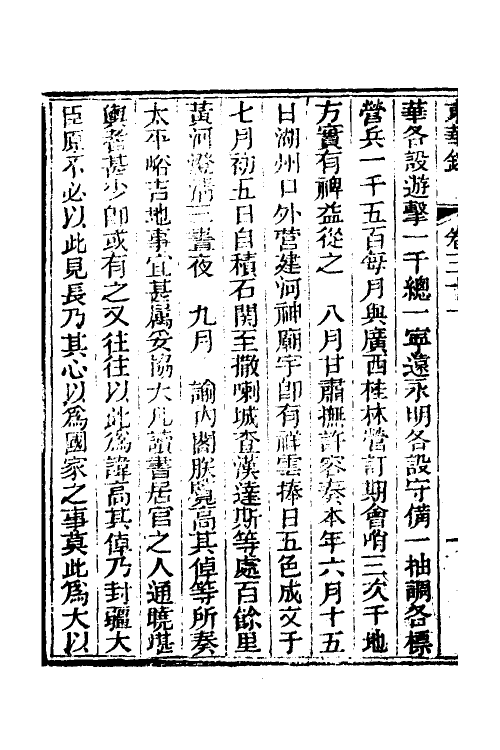 東華錄 卷三十一
華各設遊擊一千總一寧遠永明各設守備一抽調各標
營兵一千五百每月與廣西桂林營訂期會哨三次于地
方實有裨益從之　八月甘肅撫許容奏本年六月十五
日湖州口外營建河神廟宇卽有祥雲捧日五色成文于
七月初五日自積石關至撒喇城查漢達斯等處百餘里
黃河澄清三晝夜　九月　諭內閣朕覽高其倬等所奏
太平峪吉地事宜甚屬妥協大凡讀書居官之人通曉堪
輿者甚少卽或有之又往往以此為諱高其倬乃封疆大
臣原不必以此見長乃其心以為國家之事莫此為大以